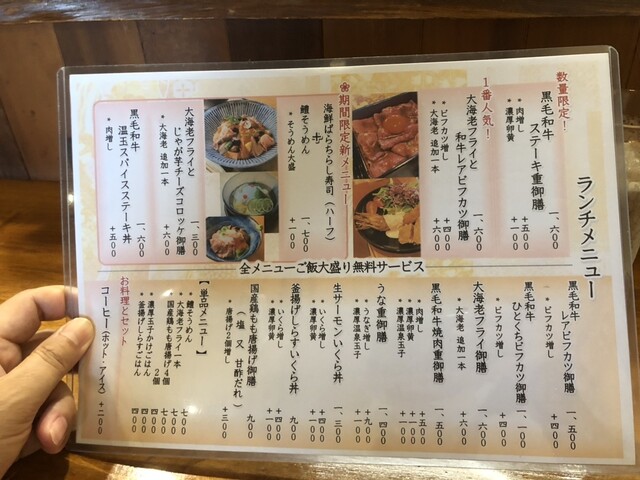 ランチメニュー
数量限定!
黒毛和牛
ステーキ重御膳 一、六00
・肉増し +五00
・濃厚卵黄 +一00
1番人気!
大海老フライと
和牛レアビフカツ御膳 一、六00
・ビフカツ増し +四00
・大海老 追加一本 +六00
期間限定新メニュー
海鮮ばらちらし寿司(ハーフ)
+
鱧そうめん 一、七00
・そうめん大盛 +一00
大海老フライと
じゃが芋チーズコロッケ御膳 一、三00
・大海老 追加一本 +六00
黒毛和牛
温玉スパイスステーキ丼 一、六00
・肉増し +五00
全メニューご飯大盛り無料サービス
黒毛和牛
レアビフカツ御膳 一、五00
・ビフカツ増し +四00
黒毛和牛
ひとくちビフカツ御膳 一、一00
・ビフカツ増し +四00
大海老フライ御膳 一、五00
・大海老 追加一本 +六00
黒毛和牛焼肉重御膳 一、五00
・肉増し +五00
・濃厚卵黄 +一00
・濃厚温泉玉子 +一00
うな重御膳 一、四00
・うなぎ増し +九00
・濃厚温泉玉子 +一00
生サーモンいくら丼 一、三00
・いくら増し +四00
・濃厚卵黄 +一00
釜揚げしらすいくら丼 九00
・いくら増し +四00
・濃厚卵黄 +一00
国産鶏もも唐揚げ御膳 九00
(塩 又 甘酢だれ)
・唐揚げ2個増し +三00
【単品メニュー】
・鱧そうめん 七00
・大海老フライ一本 七00
・国産鶏もも唐揚げ4個 七00
2個 四00
・濃厚玉子かけごはん 四00
・釜揚げしらすごはん 四00
お料理とセット
コーヒー(ホット・アイス) +二00